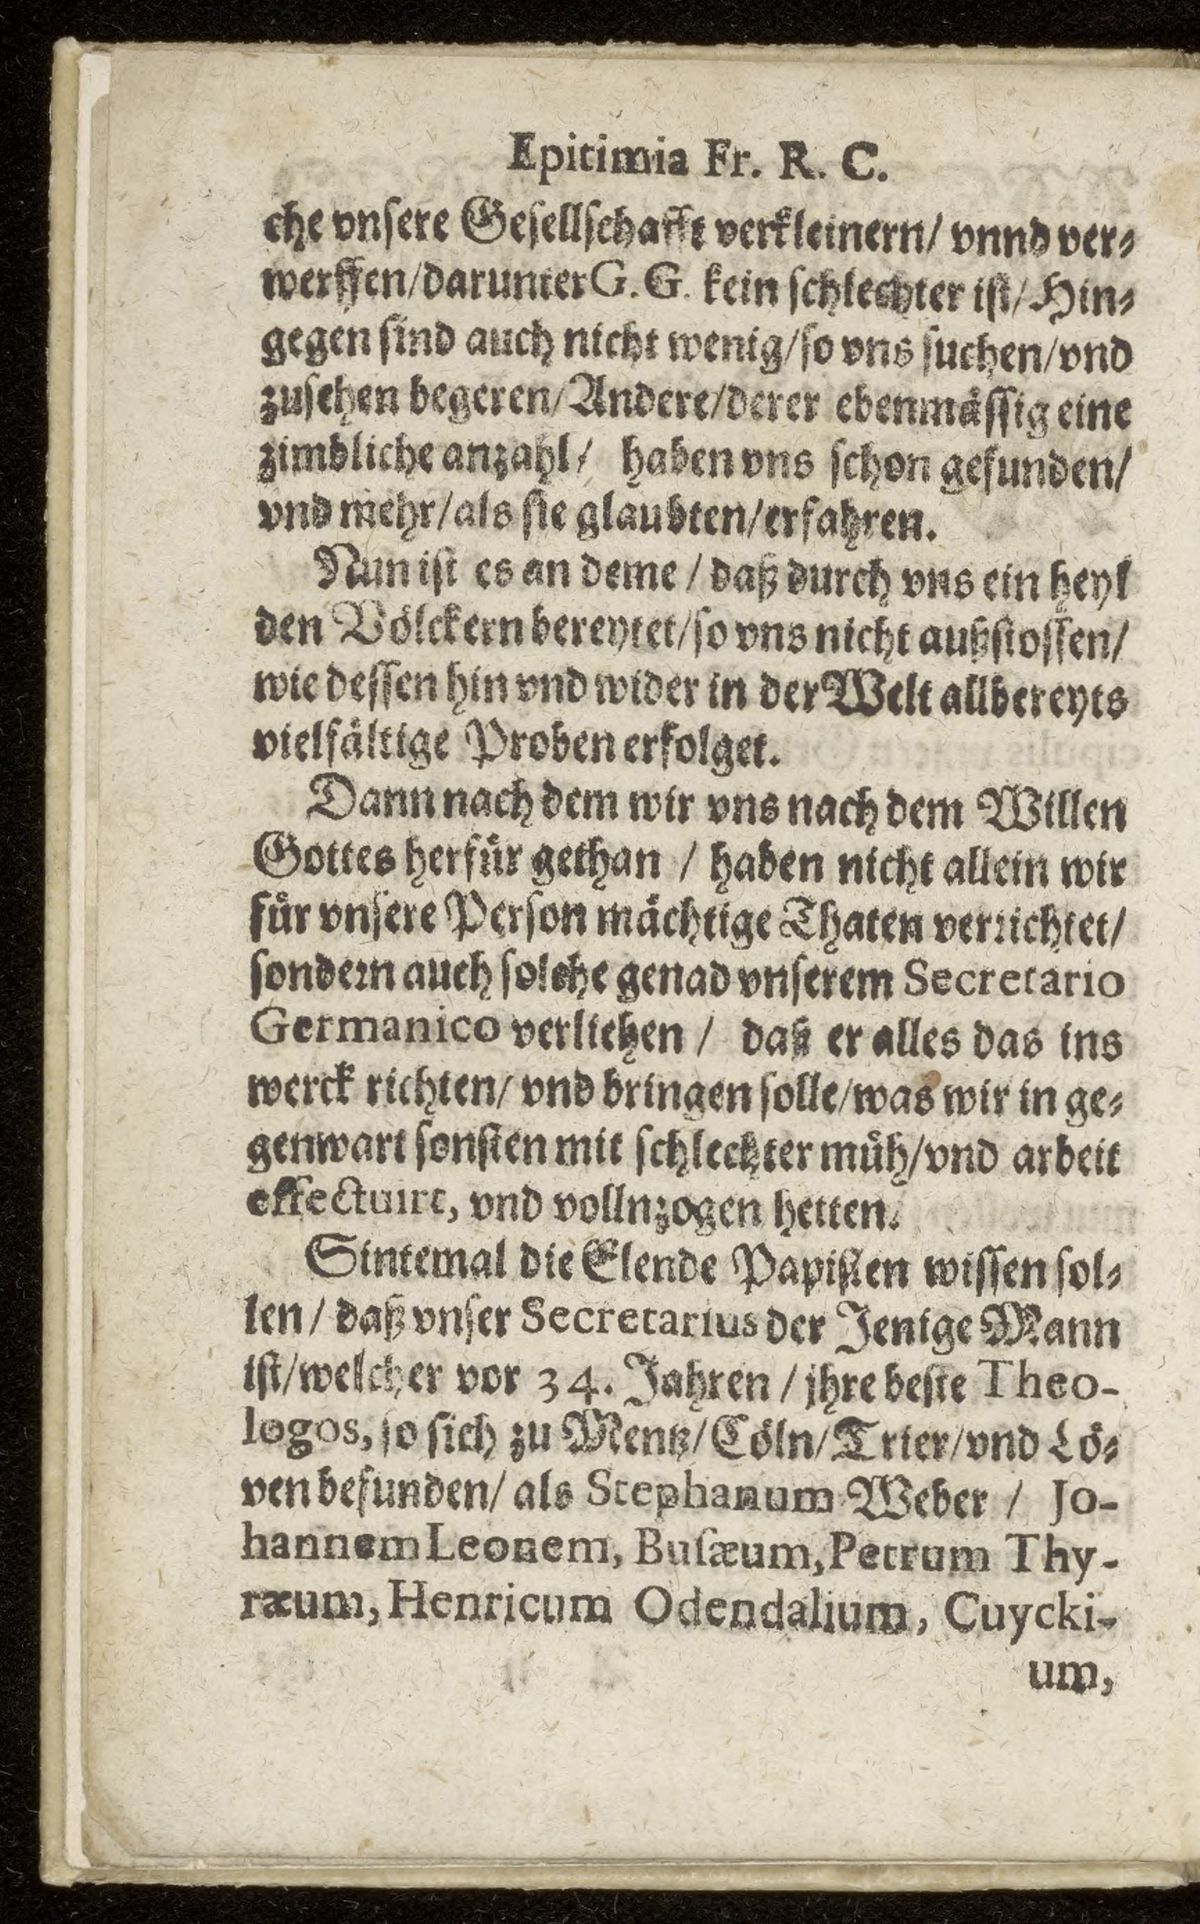 Epitimia Fr. R. C.
che vnsere Gesellschafft verkleinern/ vnnd ver⸗
werffen/darunter G. G. kein schlechter ist/Hin⸗
gegen sind auch nicht wenig/so vns suchen/vnd
zusehen begeren/Andere/derer ebenmässig eine
zimbliche anzahl/ haben vns schon gefunden/
vnd mehr/als sie glaubten/erfahren.
Nun ist es an deme / daß durch vns ein heyl
den Völckern bereytet/so vns nicht außstossen/
wie dessen hin vnd wider in der Welt allbereyts
vielfältige Proben erfolget.
Dann nach dem wir vns nach dem Willen
Gottes herfür gethan / haben nicht allein wir
für vnsere Person mächtige Thaten verrichtet/
sondern auch solche genad vnserem Secretario
Germanico verliehen / daß er alles das ins
werck richten/ vnd bringen solle/was wir in ge⸗
genwart sonsten mit schlechter müh/vnd arbeit
effectuirt, vnd vollnzogen hetten.
Sintemal die Elende Papisten wissen sol⸗
len / daß vnser Secretarius der Jenige Mann
ist/welcher vor 34. Jahren / jhre beste Theo-
logos, so sich zu Mentz/Cöln/Trier/vnd Lö⸗
ven befunden/ als Stephanum Weber / Jo-
hannem Leonem, Busæum, Petrum Thy-
ræum, Henricum Odendalium, Cuycki-
um,